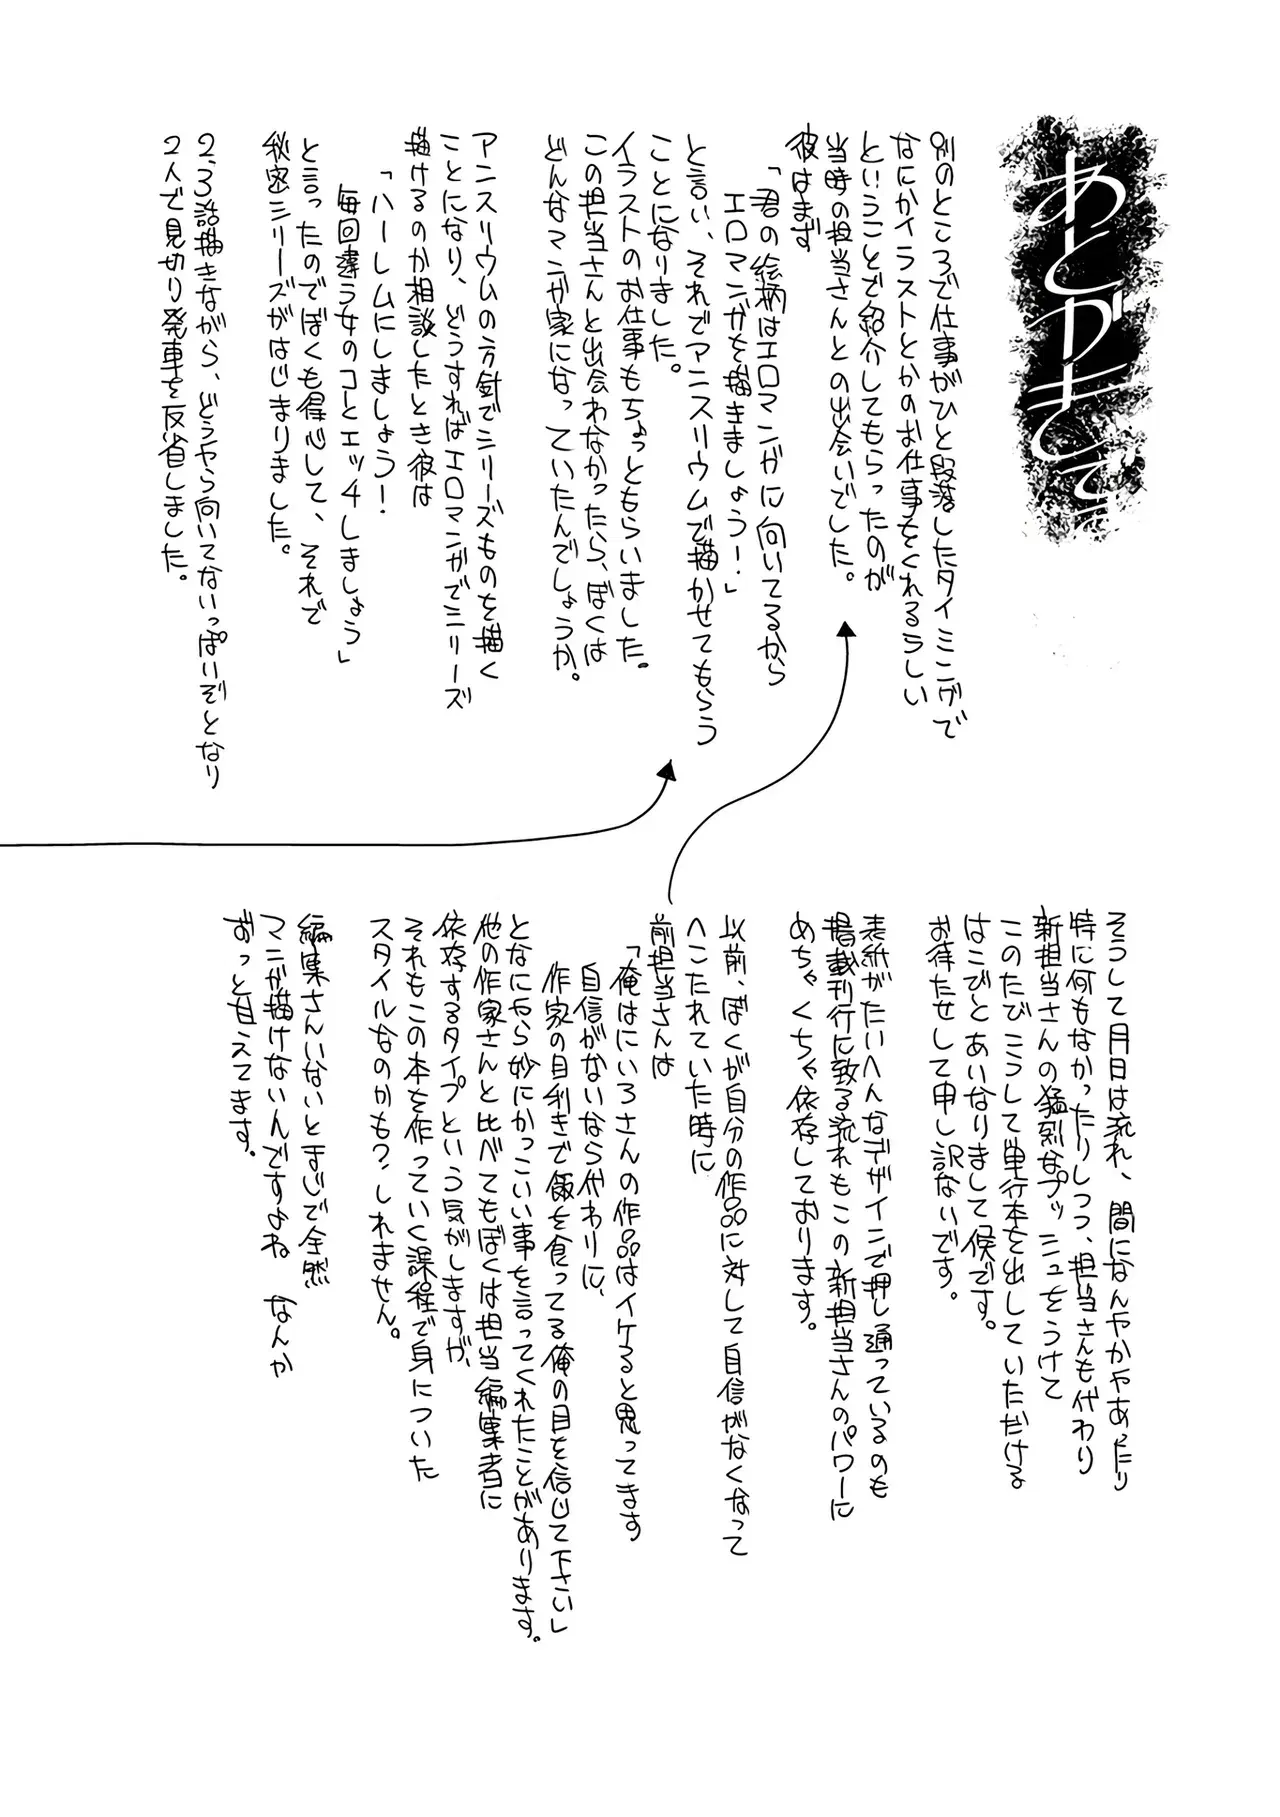 あとがきです
別のところで仕事がひと段落したタイミングで
なにかイラストとかのお仕事をくれるらしい
ということで紹介してもらったのが
当時の担当さんとの出会いでした。
彼はまず
「君の絵柄はエロマンガに向いてるから
エロマンガを描きましょう!」
と言い、それでアンスリウムで描かせてもらう
ことになりました。
イラストのお仕事もちょっともらいました。
この担当さんと出会わなかったら、ぼくは
どんなマンガ家になっていたんでしょうか。
アンスリウムの方針でシリーズものを描く
ことになり、どうすればエロマンガでシリーズ
描けるのか相談したとき彼は
「ハーレムにしましょう!
毎回違う女のコとエッチしましょう」
と言ったのでぼくも得心して、それで
秘密シリーズがはじまりました。
2,3話描きながら、どうやら向いてないっぽいぞとなり
2人で見切り発車を反省しました。
そうして月日は流れ、間になんやかやあったり
特に何もなかったりしつつ、担当さんも代わり
新担当さんの猛烈なプッシュをうけて
このたびこうして単行本を出していただける
はこびとあいなりまして候です。
お待たせして申し訳ないです。
表紙がたいへんなデザインで押し通っているのも
掲載刊行に致る流れもこの新担当さんのパワーに
めちゃくちゃ依存しております。
以前、ぼくが自分の作品に対して自信がなくなって
へこたれていた時に
前担当さんは
「俺はにいろさんの作品はイケると思ってます
自信がないなら代わりに、
作家の目利きで飯を食ってる俺の目を信じて下さい」
となにやら妙にかっこいい事を言ってくれたことがあります。
他の作家さんと比べてもぼくは担当編集者に
依存するタイプという気がしますが、
それもこの本を作っていく課程で身についた
スタイルなのかも?しれません。
編集さんいないとまじで全然
マンガ描けないんですよね なんか
ずっと甘えてます。